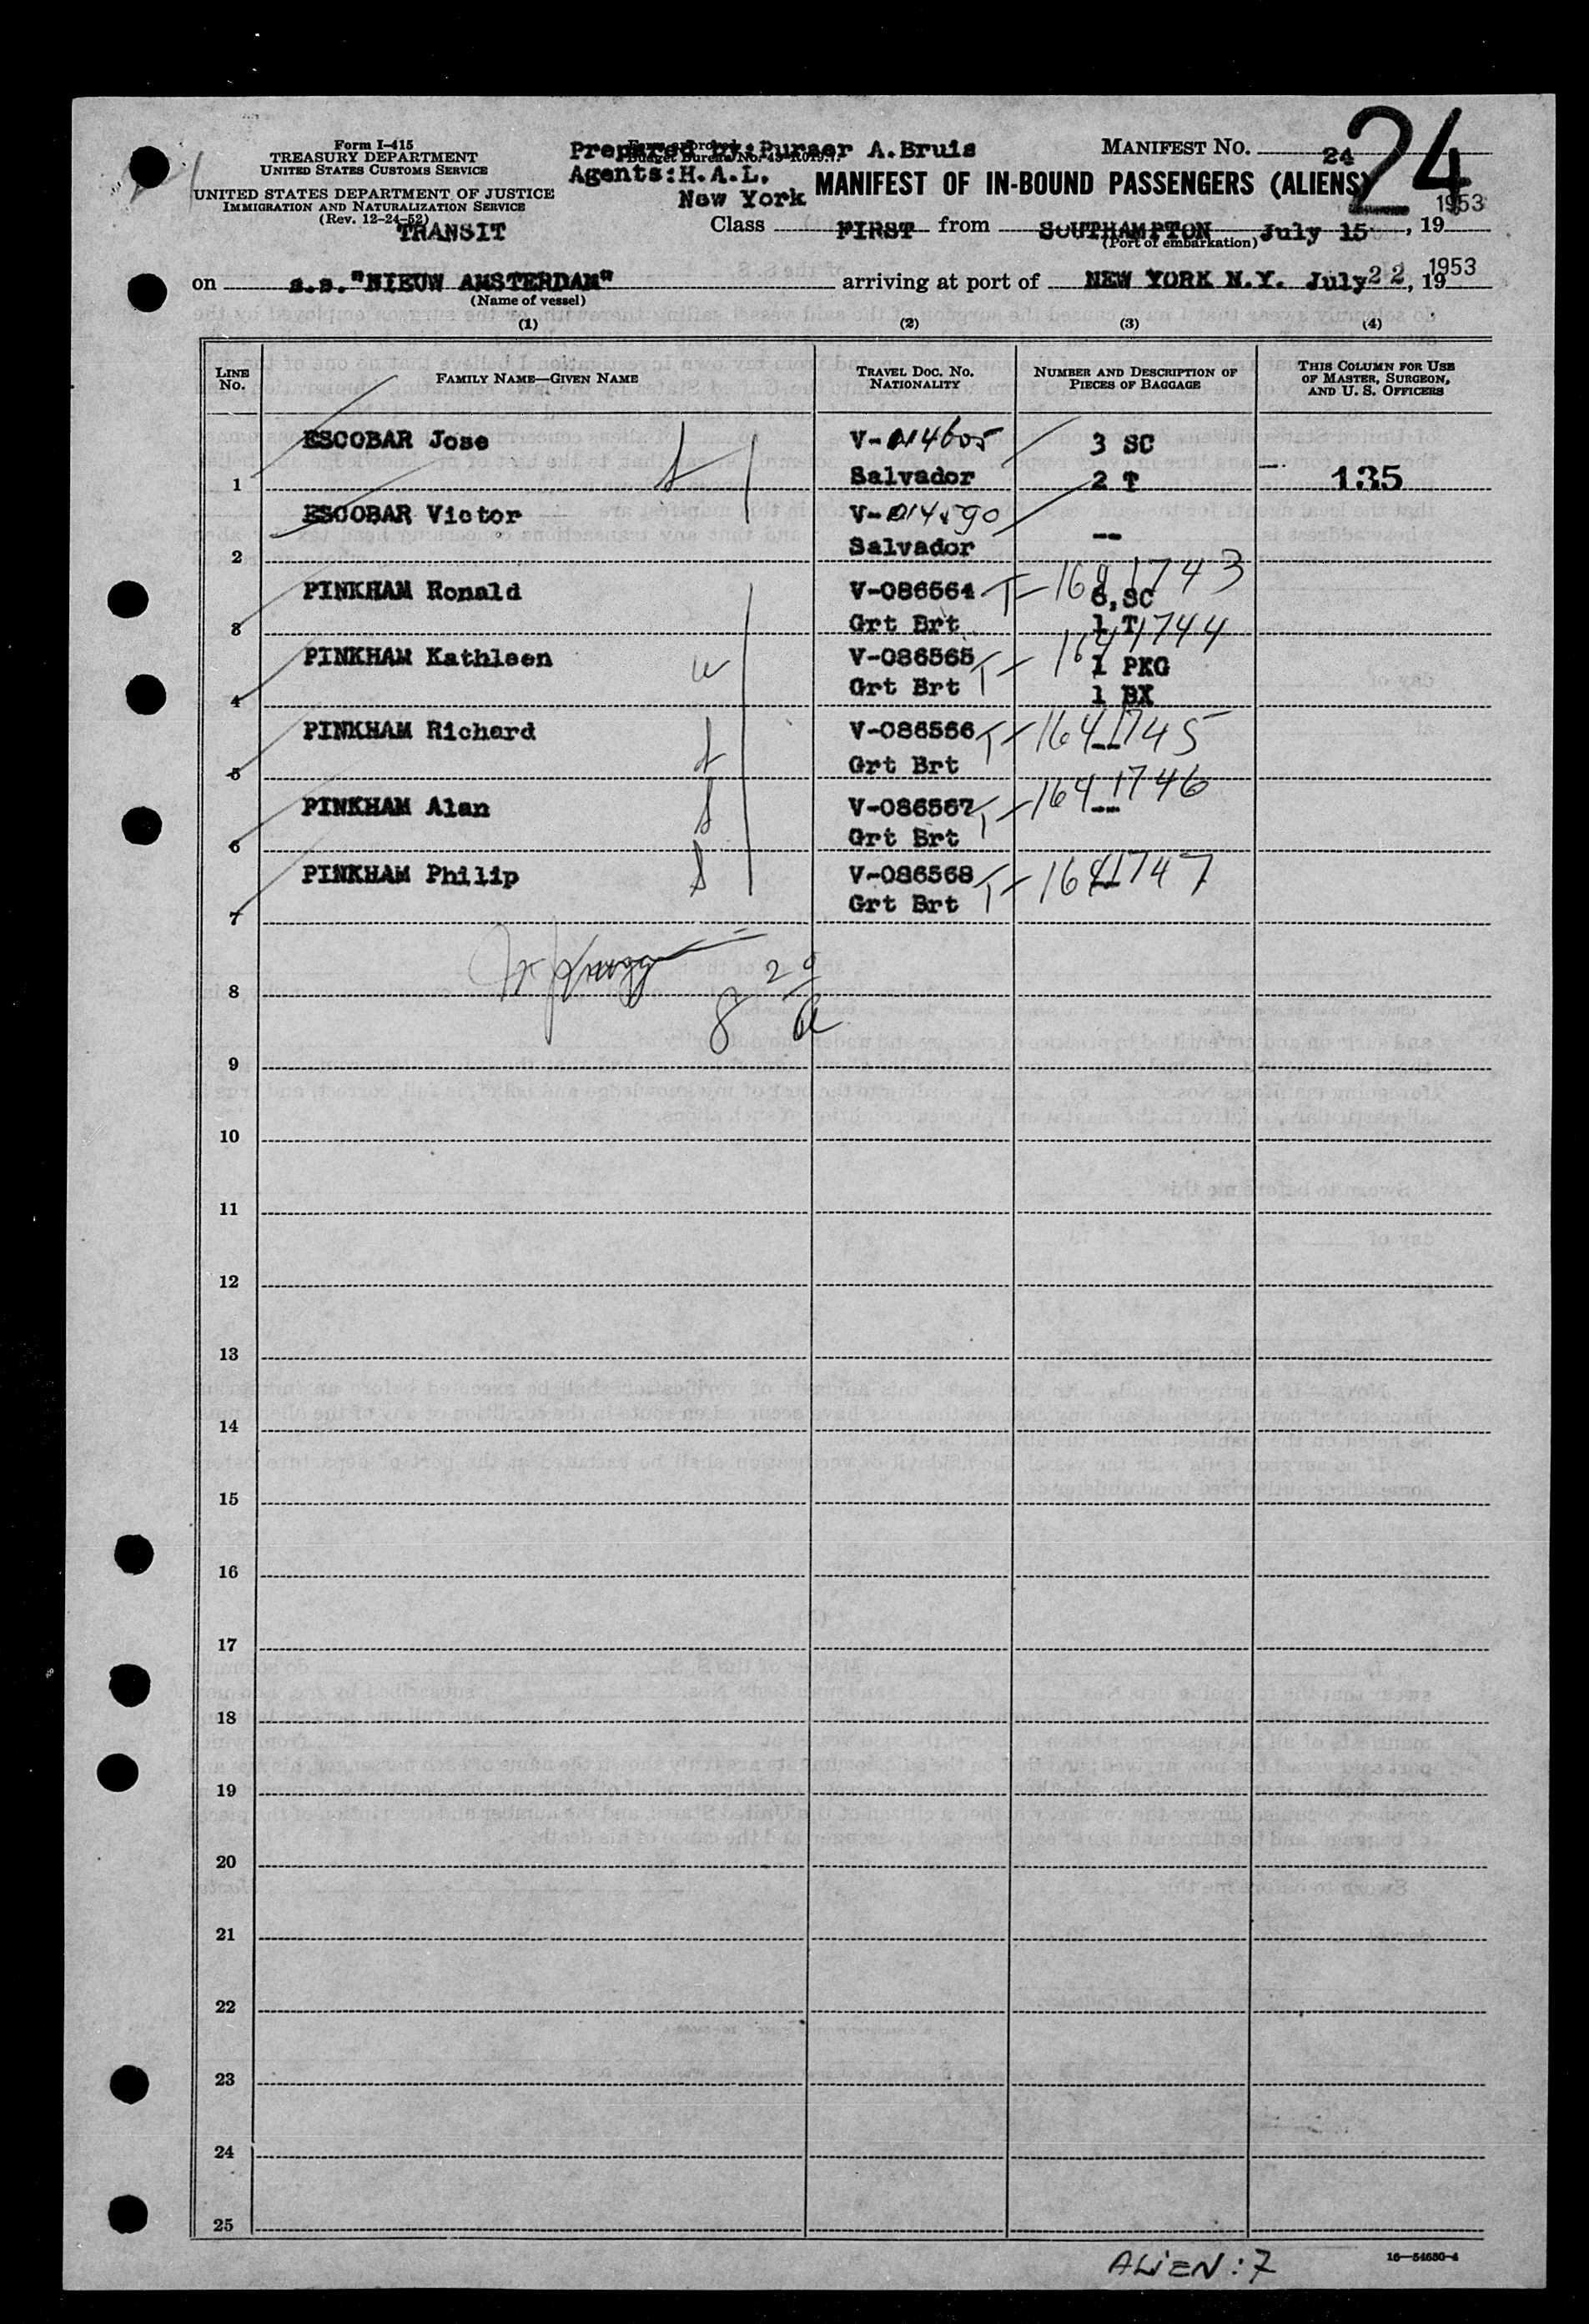 Form I-415
TREASURY DEPARTMENT
UNITED STATES CUSTOMS SERVICE
UNITED STATES DEPARTMENT OF JUSTICE
IMMIGRATION AND NATURALIZATION SERVICE
(Rev. 12-24-52)
TRANSIT
Prepared by: Purser A.Bruis
Agents: H.A.L.
New York
MANIFEST NO. 24
24
MANIFEST OF IN-BOUND PASSENGERS (ALIENS)
Class FIRST from SOUTHAMPTON July 15, 19 1953
(Port of embarkation)
on s.s. "NIEUW AMSTERDAM" arriving at port of NEW YORK N.Y. July 22, 19 1953
(Name of vessel)
(1) (2) (3) (4)
LINE NO. FAMILY NAME—GIVEN NAME TRAVEL DOC. NO. NATIONALITY NUMBER AND DESCRIPTION OF PIECES OF BAGGAGE THIS COLUMN FOR USE OF MASTER, SURGEON, AND U. S. OFFICERS
ESCOBAR Jose V-014605 3 SC
1 Salvador 2 T 135
ESCOBAR Victor V-014590 --
2 Salvador
PINKHAM Ronald V-086564 T-1641743 SC
3 Grt Brt 1 T
PINKHAM Kathleen V-086565 T-1641744 1 PKG
4 Grt Brt 1 BX
PINKHAM Richard V-086566 T-1641745 --
5 Grt Brt
PINKHAM Alan V-086567 T-1641746 --
6 Grt Brt
PINKHAM Philip V-086568 T-1641747 --
7 Grt Brt
8
9
10
11
12
13
14
15
16
17
18
19
20
21
22
23
24
25
ALIEN: 7
16—54630-4